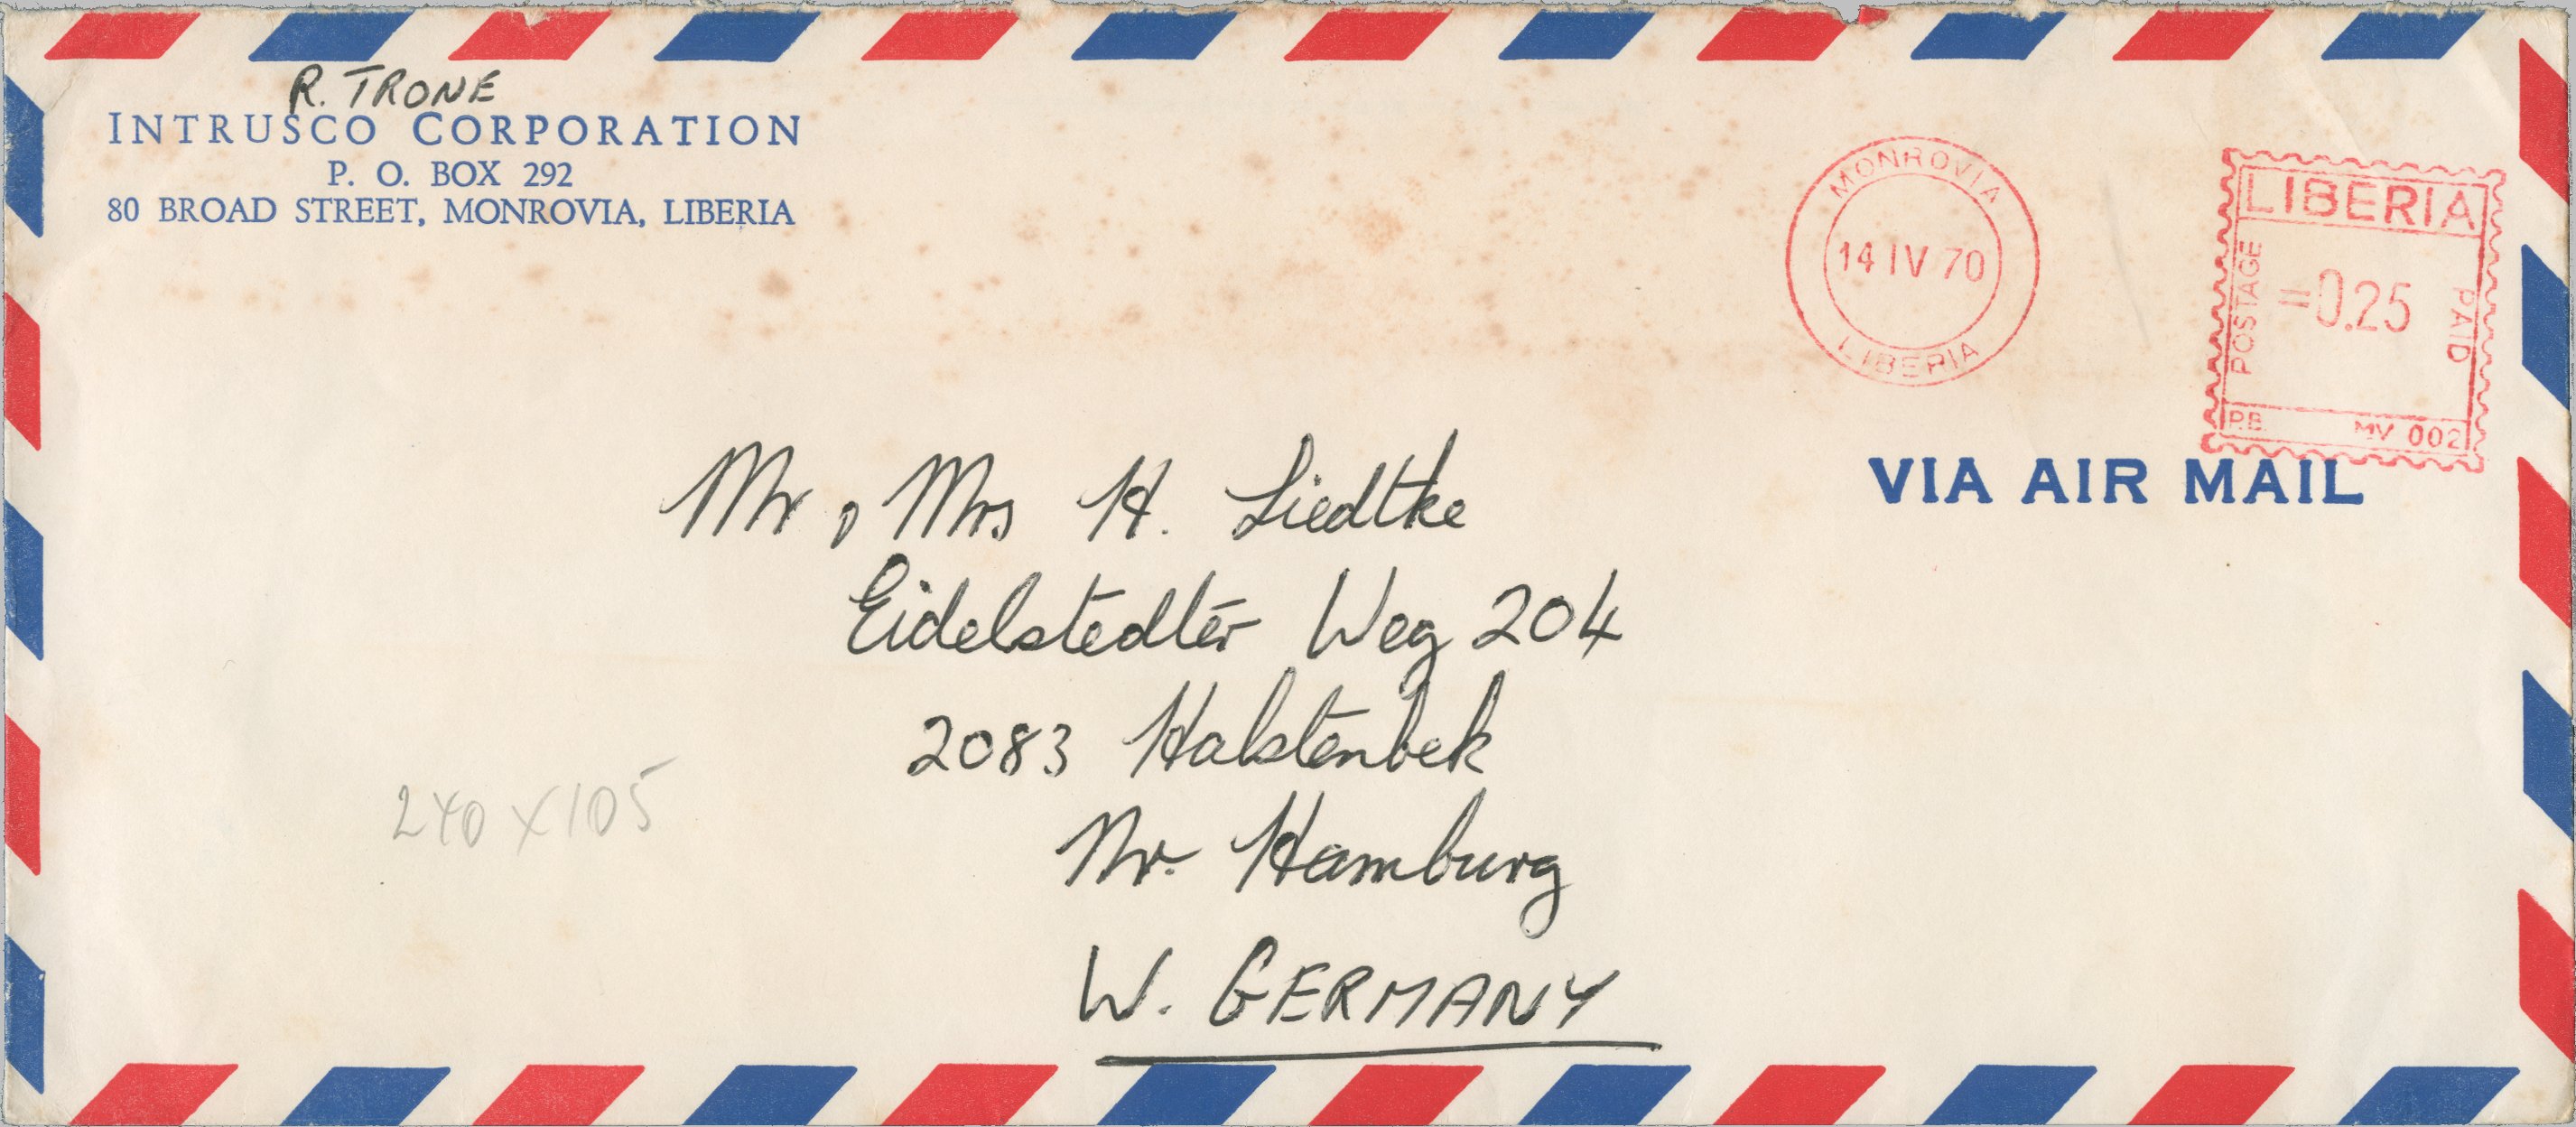 R. TRONE
INTRUSCO CORPORATION
P. O. BOX 292
80 BROAD STREET, MONROVIA, LIBERIA
MONROVIA
14 IV 70
LIBERIA
LIBERIA
POSTAGE
=0.25
PAID
P.B. MV 002
VIA AIR MAIL
Mr, Mrs H. Liedtke
Eidelstedter Weg 204
2083 Halstenbek
Nr. Hamburg
W. GERMANY
240 X 105